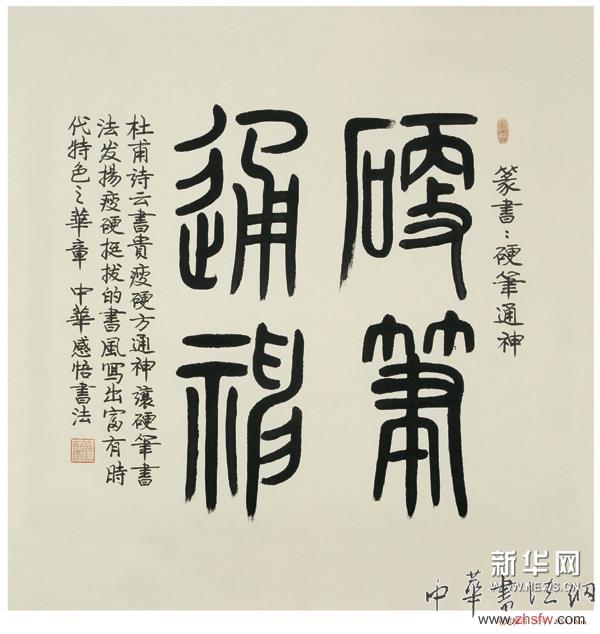 篆書：硬筆通神
硬筆
通神
杜甫诗云書貴瘦硬方通神讓硬筆書
法发揚瘦硬挺拔的書風寫出富有時
代特色之華章 中華感悟書法
新华网
中華書法網
www.zhsfw.com